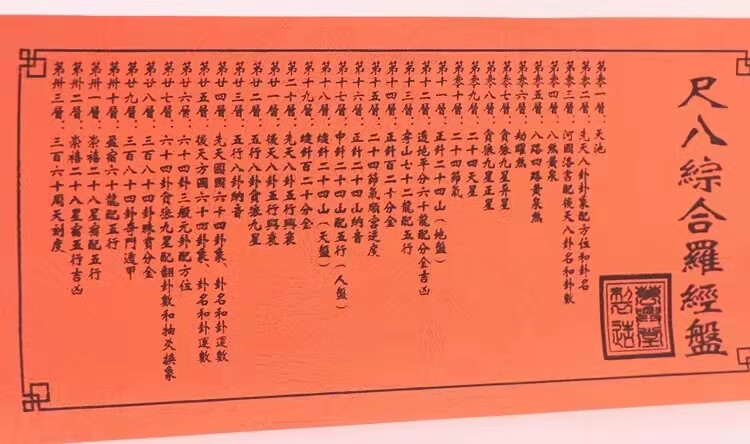 尺八綜合羅經盤
第叁一層：天池
第叁二層：先天八卦卦象配方位和卦名
第叁三層：河圖洛書配後天八卦名和卦數
第叁四層：八煞黃泉
第叁五層：八路四路黃泉煞
第叁六層：劫曜煞
第叁七層：貪狼九星昇星
第叁八層：貪狼九星正星
第叁九層：二十四天星
第叁十層：二十四節氣
第十一層：正針二十四山（地盤）
第十二層：透地平分六十龍配分金吉凶
第十三層：穿山七十二龍配五行
第十四層：正針百二十分金
第十五層：二十四節氣順宮逆度
第十六層：正針二十四山納音
第十七層：中針二十四山配五行（人盤）
第十八層：縫針二十四山（天盤）
第十九層：縫針百二十分金
第二十層：先天八卦五行興衰
第廿一層：後天八卦五行興衰
第廿二層：五行八卦貪狼九星
第廿三層：五行八卦納音
第廿四層：先天圓圖六十四卦象、卦名和卦運數
第廿五層：後天方圖六十四卦象、卦名和卦運數
第廿六層：六十四卦三般元卦配方位
第廿七層：六十四卦貪狼九星配翻卦數和抽爻換象
第廿八層：三百八十四卦珠寶分金
第廿九層：三百八十四卦奇門遁甲
第卅十層：盈宿六十龍配五行
第卅一層：崇禧二十八星宿配五行
第卅二層：崇禧二十八星宿五行吉凶
第卅三層：三百六十周天刻度
興堂
製造